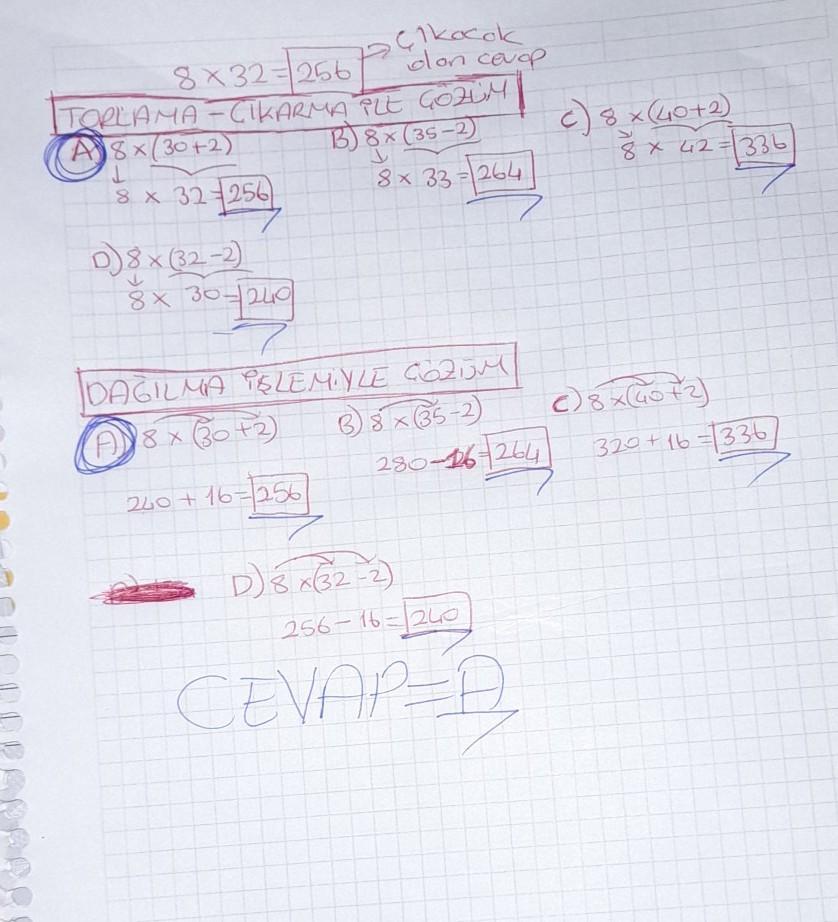 8 x 32 = 256 → Çıkacak
olan cevap
TOPLAMA - ÇIKARMA İLE ÇÖZÜM
A) 8 x (30+2)
8 x 32 = 256
B) 8 x (35-2)
8 x 33 = 264
C) 8 x (40+2)
8 x 42 = 336
D) 8 x (32-2)
8 x 30 = 240
DAĞILMA İŞLEMİYLE ÇÖZÜM
A) 8 x (30+2)
240 + 16 = 256
B) 8 x (35-2)
280 - 16 = 264
C) 8 x (40+2)
320 + 16 = 336
D) 8 x (32-2)
256 - 16 = 240
CEVAP = A